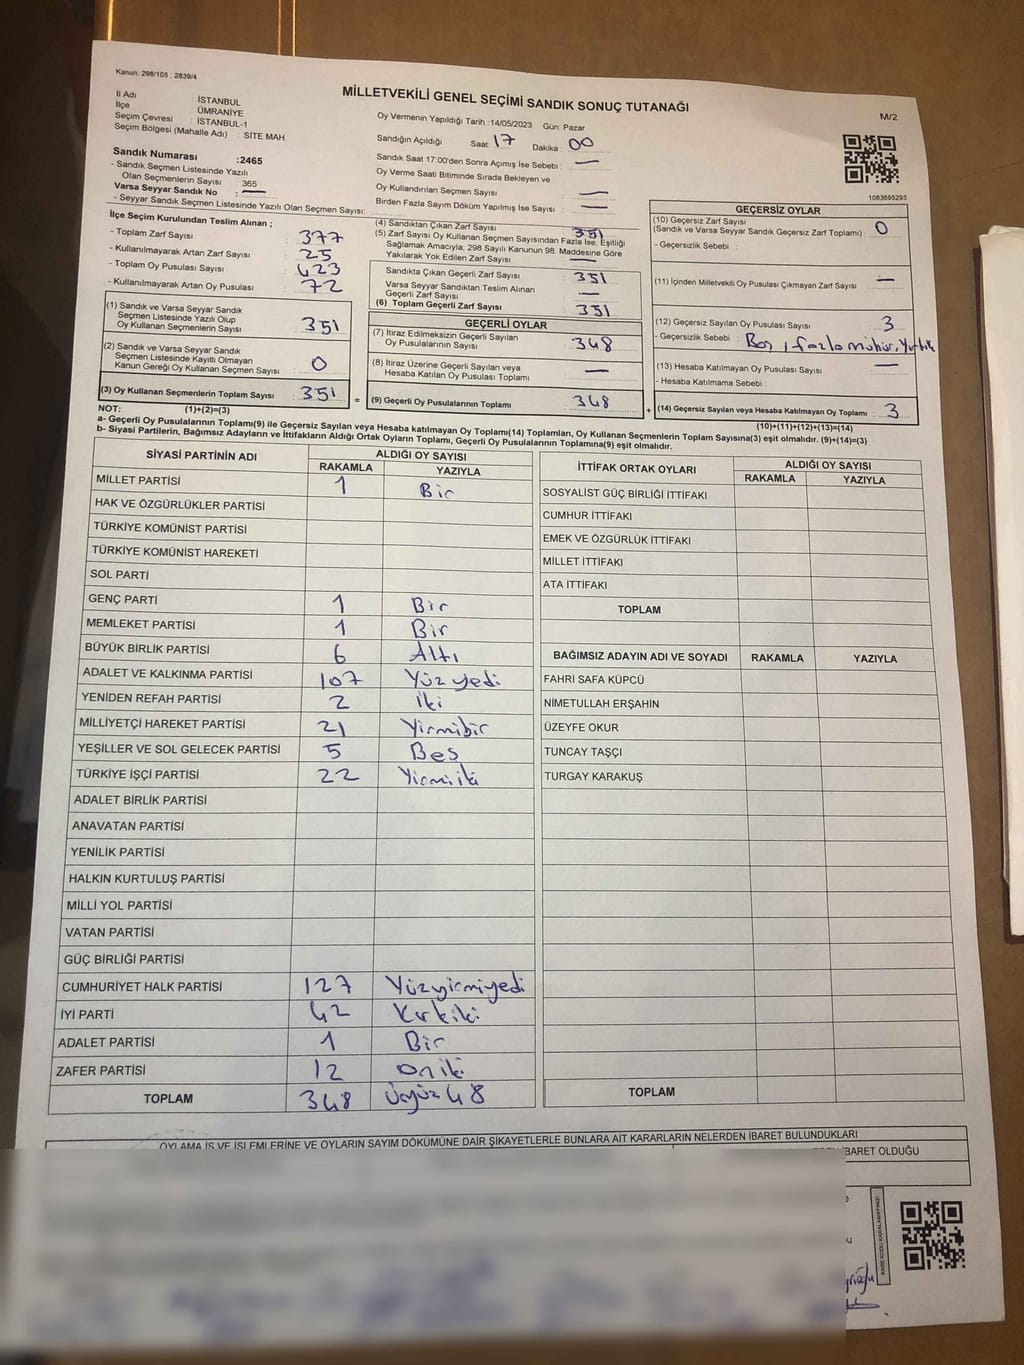 Kanun: 298/105 , 2839/4
MİLLETVEKİLİ GENEL SEÇİMİ SANDIK SONUÇ TUTANAĞI
M/2
İl Adı : İSTANBUL
İlçe : ÜMRANİYE
Seçim Çevresi : İSTANBUL-1
Seçim Bölgesi (Mahalle Adı) : SİTE MAH.
Sandık Numarası :2465
- Sandık Seçmen Listesinde Yazılı
Olan Seçmenlerin Sayısı : 365
Varsa Seyyar Sandık No : —
- Seyyar Sandık Seçmen Listesinde Yazılı Olan Seçmen Sayısı:
Oy Vermenin Yapıldığı Tarih : 14/05/2023 Gün: Pazar
Sandığın Açıldığı Saat : 17 Dakika : 00
Sandık Saat 17:00'den Sonra Açımış İse Sebebi : —
Oy Verme Saati Bitiminde Sırada Bekleyen ve
Oy Kullandırılan Seçmen Sayısı : —
Birden Fazla Sayım Döküm Yapılmış İse Sayısı : —
1083695293
İlçe Seçim Kurulundan Teslim Alınan ;
- Toplam Zarf Sayısı : 377
- Kullanılmayarak Artan Zarf Sayısı : 25
- Toplam Oy Pusulası Sayısı : 423
- Kullanılmayarak Artan Oy Pusulası : 72
(1) Sandık ve Varsa Seyyar Sandık
Seçmen Listesinde Yazılı Olup
Oy Kullanan Seçmenlerin Sayısı : 351
(2) Sandık ve Varsa Seyyar Sandık
Seçmen Listesinde Kayıtlı Olmayan
Kanun Gereği Oy Kullanan Seçmen Sayısı : 0
(3) Oy Kullanan Seçmenlerin Toplam Sayısı : 351
(4) Sandıktan Çıkan Zarf Sayısı : 351
(5) Zarf Sayısı Oy Kullanan Seçmen Sayısından Fazla İse, Eşitliği
Sağlamak Amacıyla; 298 Sayılı Kanunun 98. Maddesine Göre
Yakılarak Yok Edilen Zarf Sayısı : —
Sandıkta Çıkan Geçerli Zarf Sayısı : 351
Varsa Seyyar Sandıktan Teslim Alınan
Geçerli Zarf Sayısı : —
(6) Toplam Geçerli Zarf Sayısı : 351
GEÇERLİ OYLAR
(7) İtiraz Edilmeksizin Geçerli Sayılan
Oy Pusulalarının Sayısı : 348
(8) İtiraz Üzerine Geçerli Sayılan veya
Hesaba Katılan Oy Pusulası Toplamı : —
= (9) Geçerli Oy Pusulalarının Toplamı : 348
GEÇERSİZ OYLAR
(10) Geçersiz Zarf Sayısı
(Sandık ve Varsa Seyyar Sandık Geçersiz Zarf Toplamı) : 0
- Geçersizlik Sebebi :
(11) İçinden Milletvekili Oy Pusulası Çıkmayan Zarf Sayısı : —
(12) Geçersiz Sayılan Oy Pusulası Sayısı : 3
- Geçersizlik Sebebi : Boş, fazla mühür, Yırtık
(13) Hesaba Katılmayan Oy Pusulası Sayısı : —
- Hesaba Katılmama Sebebi :
+ (14) Geçersiz Sayılan veya Hesaba Katılmayan Oy Toplamı : 3
NOT: (1)+(2)=(3)
(10)+(11)+(12)+(13)=(14)
a- Geçerli Oy Pusulalarının Toplamı(9) ile Geçersiz Sayılan veya Hesaba katılmayan Oy Toplamı(14) Toplamları, Oy Kullanan Seçmenlerin Toplam Sayısına(3) eşit olmalıdır. (9)+(14)=(3)
b- Siyasi Partilerin, Bağımsız Adayların ve İttifakların Aldığı Ortak Oyların Toplamı, Geçerli Oy Pusulalarının Toplamına(9) eşit olmalıdır.
SİYASİ PARTİNİN ADI ALDIĞI OY SAYISI
RAKAMLA YAZIYLA
MİLLET PARTİSİ 1 Bir
HAK VE ÖZGÜRLÜKLER PARTİSİ
TÜRKİYE KOMÜNİST PARTİSİ
TÜRKİYE KOMÜNİST HAREKETİ
SOL PARTİ
GENÇ PARTİ 1 Bir
MEMLEKET PARTİSİ 1 Bir
BÜYÜK BİRLİK PARTİSİ 6 Altı
ADALET VE KALKINMA PARTİSİ 107 Yüzyedi
YENİDEN REFAH PARTİSİ 2 İki
MİLLİYETÇİ HAREKET PARTİSİ 21 Yirmibir
YEŞİLLER VE SOL GELECEK PARTİSİ 5 Beş
TÜRKİYE İŞÇİ PARTİSİ 22 Yirmiiki
ADALET BİRLİK PARTİSİ
ANAVATAN PARTİSİ
YENİLİK PARTİSİ
HALKIN KURTULUŞ PARTİSİ
MİLLİ YOL PARTİSİ
VATAN PARTİSİ
GÜÇ BİRLİĞİ PARTİSİ
CUMHURİYET HALK PARTİSİ 127 Yüzyirmiyedi
İYİ PARTİ 42 Kırkiki
ADALET PARTİSİ 1 Bir
ZAFER PARTİSİ 12 Oniki
TOPLAM 348 Üçyüz48
İTTİFAK ORTAK OYLARI ALDIĞI OY SAYISI
RAKAMLA YAZIYLA
SOSYALİST GÜÇ BİRLİĞİ İTTİFAKI
CUMHUR İTTİFAKI
EMEK VE ÖZGÜRLÜK İTTİFAKI
MİLLET İTTİFAKI
ATA İTTİFAKI
TOPLAM
BAĞIMSIZ ADAYIN ADI VE SOYADI RAKAMLA YAZIYLA
FAHRİ SAFA KÜPCÜ
NİMETULLAH ERŞAHİN
ÜZEYFE OKUR
TUNCAY TAŞÇI
TURGAY KARAKUŞ
TOPLAM
OYLAMA İŞ VE İŞLEMLERİNE VE OYLARIN SAYIM DÖKÜMÜNE DAİR ŞİKAYETLERLE BUNLARA AİT KARARLARIN NELERDEN İBARET BULUNDUKLARI
İBARET OLDUĞU
KARE KODU KARALAMAYINIZ!